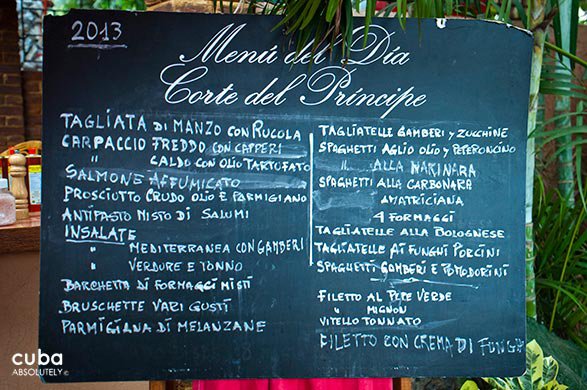 2013
Menú del Día
Corte del Príncipe
TAGLIATA DI MANZO CON RUCOLA
CARPACCIO FREDDO CON CAPPERI
" CALDO CON OLIO TARTUFATO
SALMONE AFFUMICATO
PROSCIUTTO CRUDO OLIO E PARMIGIANO
ANTIPASTO MISTO DI SALUMI
INSALATE
" MEDITERRANEA CON GAMBERI
" VERDURE E TONNO
BARCHETTA DI FORMAGGI MISTI
BRUSCHETTE VARI GUSTI
PARMIGIANA DI MELANZANE
TAGLIATELLE GAMBERI Y ZUCCHINE
SPAGHETTI AGLIO OLIO y PEPERONCINO
" ALLA MARINARA
SPAGHETTI ALLA CARBONARA
AMATRICIANA
4 FORMAGGI
TAGLIATELLE ALLA BOLOGNESE
TAGLIATELLE AI FUNGHI PORCINI
SPAGHETTI GAMBERI E POMODORINI
FILETTO AL PEPE VERDE
" MIGNON
VITELLO TONNATO
FILETTO CON CREMA DI FUNGHI
cuba
ABSOLUTELY ©